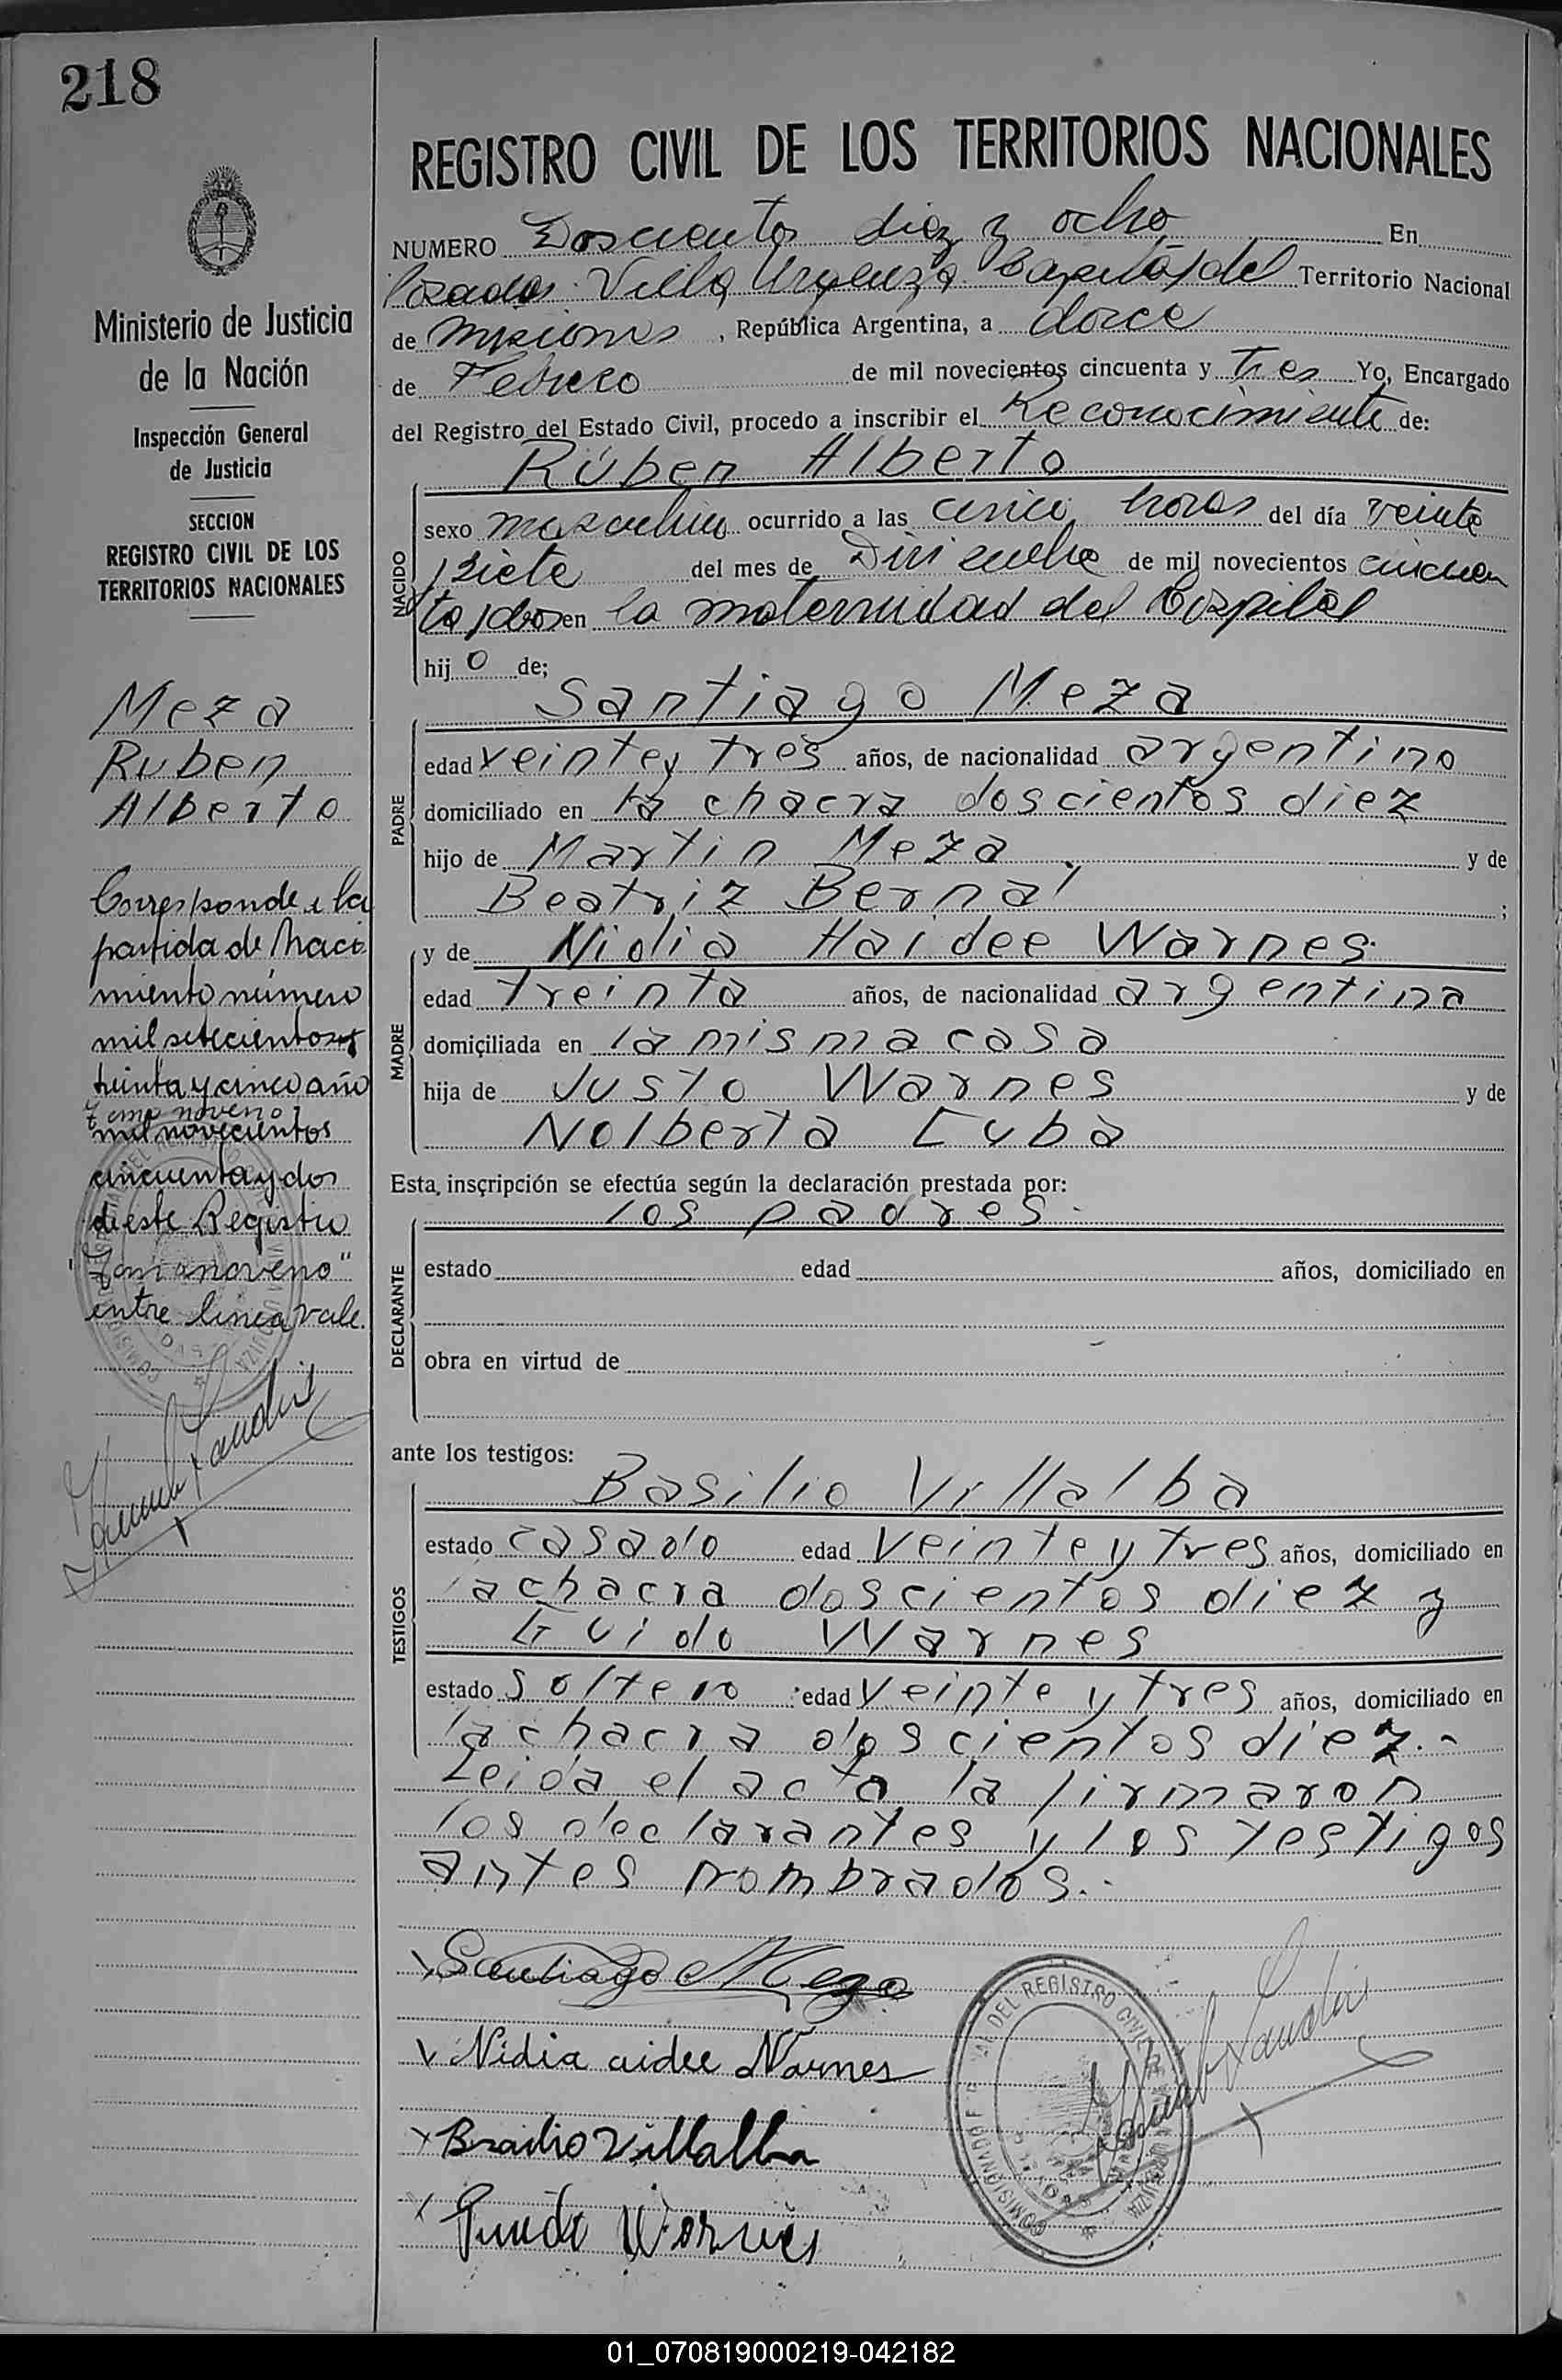 218
REGISTRO CIVIL DE LOS TERRITORIOS NACIONALES
Ministerio de Justicia
de la Nación
Inspección General
de Justicia
SECCION
REGISTRO CIVIL DE LOS
TERRITORIOS NACIONALES
Meza
Ruben
Alberto
Corresponde a la
partida de Naci
miento número
mil setecientos
treinta y cinco año
tomo noveno
mil novecientos
cincuenta y dos
de este Registro
"Tomo noveno"
entre linea vale.
NUMERO Doscientos diez y ocho En
Posadas Villa Urquiza Capital del Territorio Nacional
de Misiones, República Argentina, a doce
de Febrero de mil novecientos cincuenta y tres Yo, Encargado
del Registro del Estado Civil, procedo a inscribir el Reconocimiento de:
Rúben Alberto
NACIDO
sexo masculino ocurrido a las cinco horas del día veinte
siete del mes de Diciembre de mil novecientos cincuen
ta y dos en la maternidad del Hospital
hijo de;
Santiago Meza
PADRE
edad veinte y tres años, de nacionalidad argentino
domiciliado en la chacra doscientos diez
hijo de Martin Meza y de
Beatriz Bernal;
MADRE
y de Nidia Haidee Warnes
edad treinta años, de nacionalidad argentina
domiciliada en la misma casa
hija de Justo Warnes y de
Nolberta Cuba
Esta inscripción se efectúa según la declaración prestada por:
los padres.
DECLARANTE
estado edad años, domiciliado en
obra en virtud de
ante los testigos:
Basilio Villalba
TESTIGOS
estado casado edad veinte y tres años, domiciliado en
la chacra doscientos diez y
Guido Warnes
estado soltero edad veinte y tres años, domiciliado en
la chacra doscientos diez.-
Leida el acta la firmaron
los declarantes y los testigos
antes nombrados.-
Santiago Meza
Nidia aidee Warnes
Basilio Villalba
Guido Warnes
DEL REGISTRO CIVIL
01_070819000219-042182